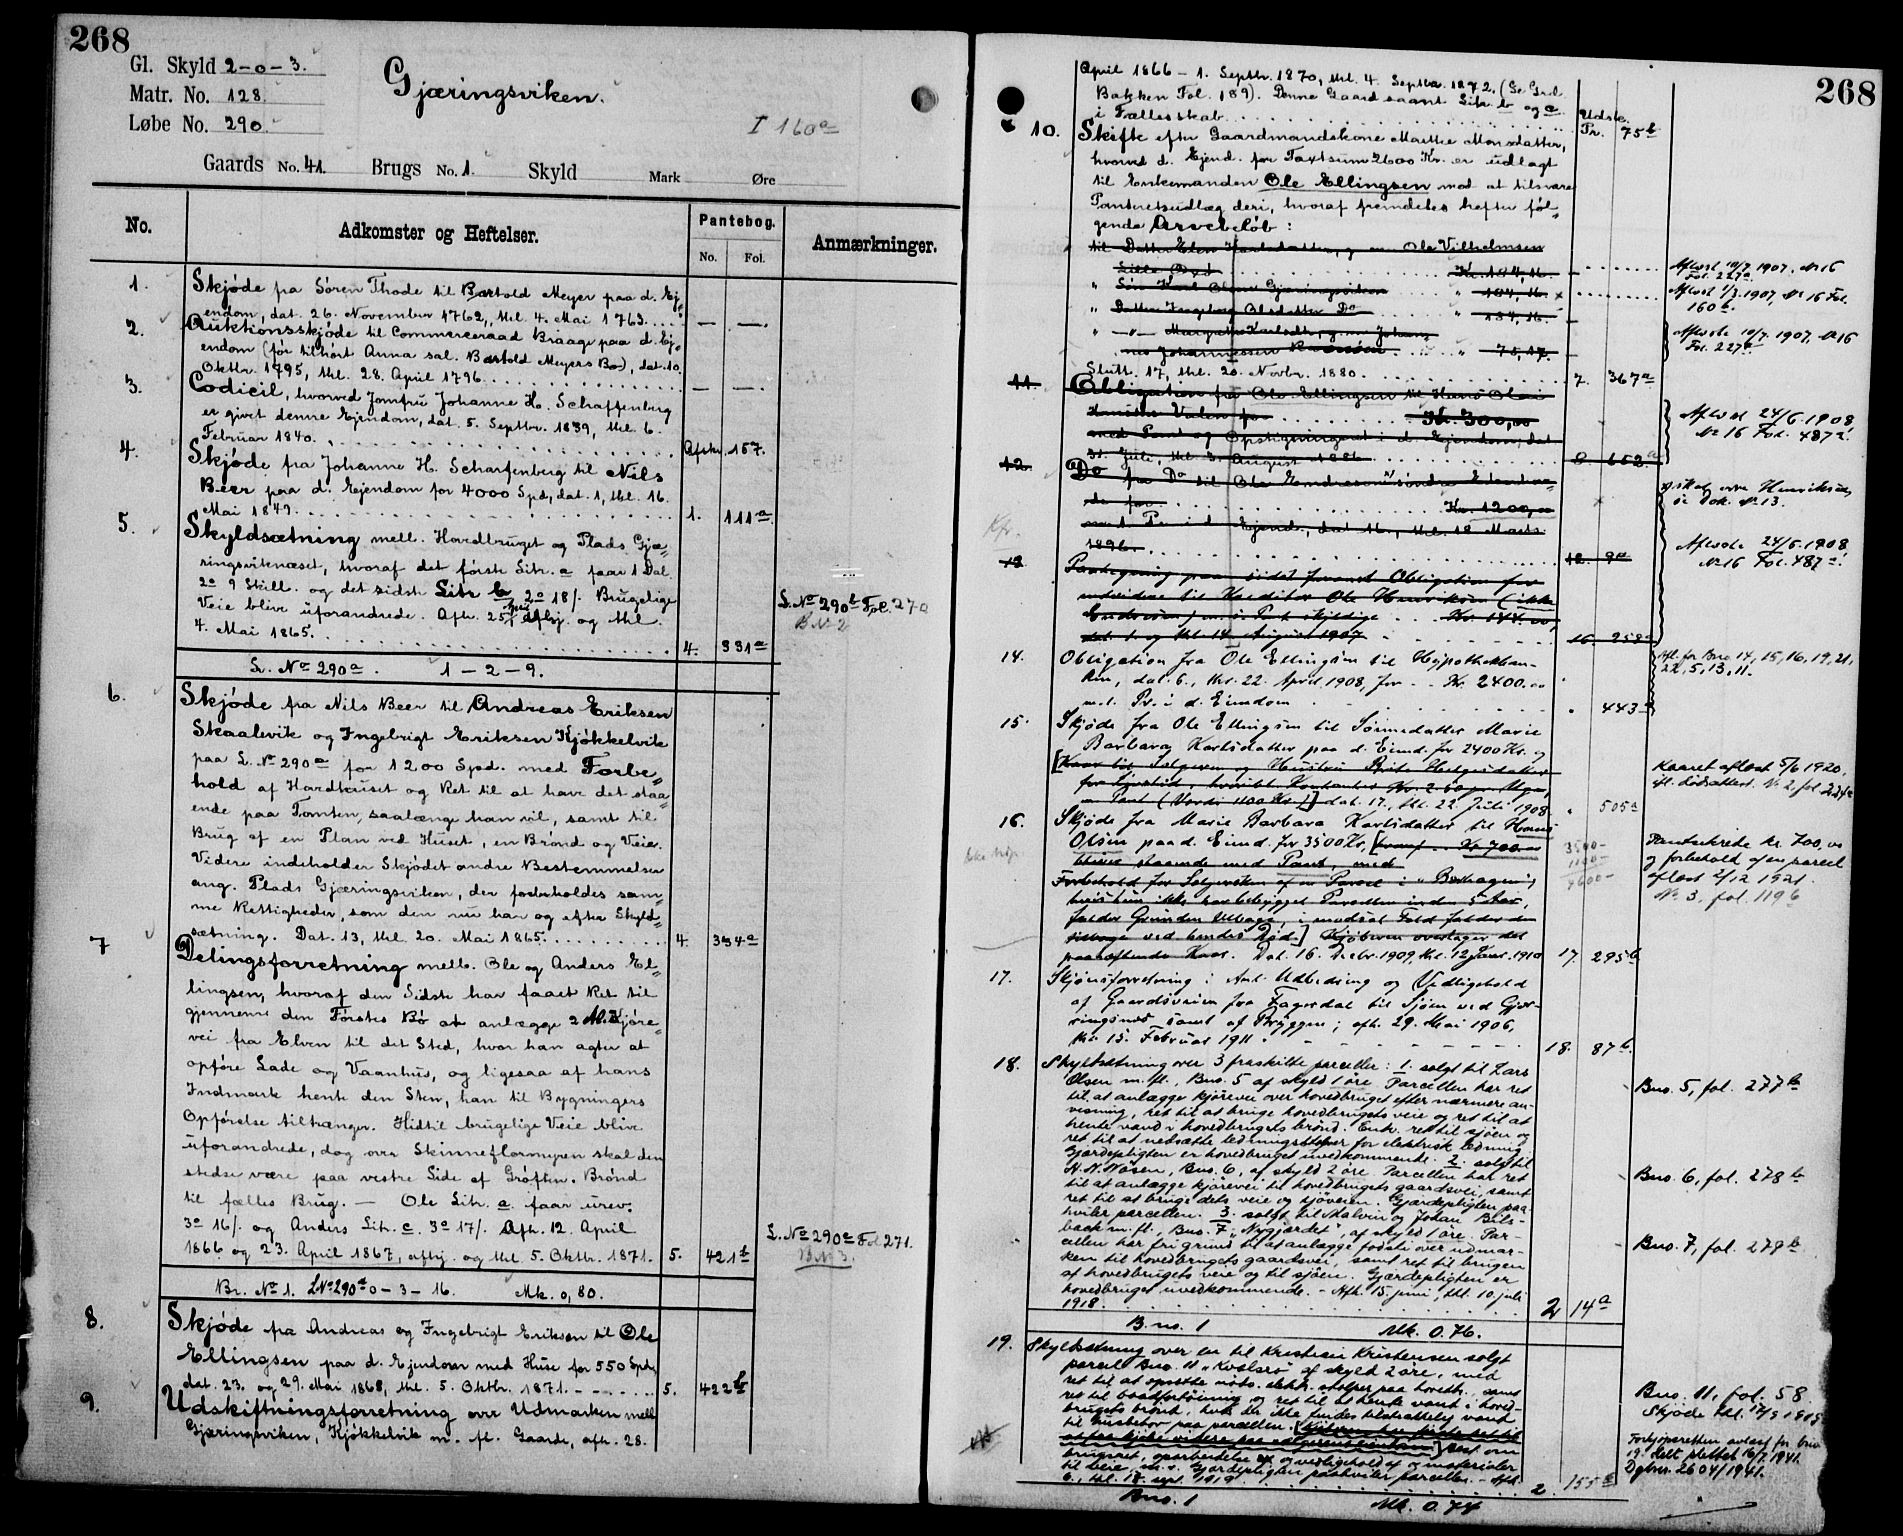 268
Gl. Skyld 2-0-3.
Matr. No. 128.
Løbe No. 290.
Gjæringsviken.
I 160a
Gaards No. 41. Brugs No. 1. Skyld Mark Øre
No. Adkomster og Heftelser. Pantebog. Anmærkninger.
No. Fol.
1. Skjøde fra Sören Thode til Bartold Meyer paa d. Ej-
endom, dat. 26. November 1762, thl. 4. Mai 1763.
2. Auktionsskjøde til Commerceraad Braage paa d. Ej-
endom (før tilhørt Anna sal. Bartold Meyers Bo), dat. 10.
Oktbr. 1795, thl. 28. April 1796.
3. Codicil, hvorved Jomfru Johanne H. Schaffenberg
er givet denne Ejendom, dat. 5. Septbr. 1839, thl. 6.
Februar 1840. Afskr. 157.
4. Skjøde fra Johanne H. Scharfenberg til Nils
Beer paa d. Ejendom for 4000 Spd, dat. 1, thl. 16.
Mai 1849. 1. 111a
5. Skyldsætning mell. Hovedbruget og Plads Gjæ-
ringsviknæset, hvoraf det første Litr. a faar 1 Dal.
2o 9 Skill. og det sidste Litr. b 2o 18/. Brugelige
Veie blive uforandrede. Afh. 25 April, afhj. og thl.
4. Mai 1865. 4. 331a
L. No 290b Fol. 270
B No 2
L. No 290a. 1-2-9.
6. Skjøde fra Nils Beer til Andreas Eriksen
Skaalevik og Ingebrigt Eriksen Kjøkkelvik
paa L. No 290a for 1200 Spd. med Forbe-
hold af Hardhuset og Ret til at have det staa-
ende paa Tomten, saalænge han vil, samt til
Brug af en Plan ved Huset, en Brønd og Veier.
Videre indeholder Skjødet andre Bestemmelser
ang. Plads Gjæringsviken, der forbeholdes sam-
me Rettigheder, som den nu har og efter Skyld-
sætning. Dat. 13, thl. 20. Mai 1865. 4. 334a
7 Delingsforretning mell. Ole og Anders El-
lingsen, hvoraf den Sidste har faaet Ret til
gjennem den Førstes Bø at anlægge 2 Al. Kjøre-
vei fra Elven til det Sted, hvor han agter at
opføre Lade og Vaanhus, og ligesaa af hans
Indmark hente den Sten, han til Bygningers
Opførelse tiltrænger. Hidtil brugelige Veie blive
uforandrede, dog over Skinneflormyren skal den
stedse være paa vestre Side af Grøften. Brønd
til fælles Brug. — Ole Litr. a faar urev.
3o 16/. og Anders Litr. c. 3o 17/. Afh. 12. April
1866 og 23. April 1867, afhj. og thl. 5. Oktbr. 1871. 5. 421b
L. No 290c Fol 271.
B No 3
Br. No 1. LNo 290a 0-3-16. Mk. 0,80.
8. Skjøde fra Andreas og Ingebrigt Eriksen til Ole
Ellingsen paa d. Ejendom med Huse for 550 Spd,
dat. 23. og 29. Mai 1868, thl. 5. Oktbr. 1871. 5. 422b
9. Udskiftningsforretning over Udmarken mell.
Gjæringsviken, Kjøkkelvik m. fl. Gaarde, afh. 28.
268
April 1866 - 1. Septbr. 1870, thl. 4. Septbr. 1872. (Se Grd.
Bakken Fol. 189). Denne Gaard saamt Litr. b og c
i Fællesskab. Udsk. Pr. 75b
10. Skifte efter Gaardmandskone Marthe Monsdatter,
hvorved d. Ejend. for Taxtsum 2600 Kr. er udlagt
til Enkemanden Ole Ellingsen mod at tilsvare
Panteretsudlæg deri, hvoraf fremdeles hefter føl-
gende Arvebeløb:
til Datter Elen Karlsdatter, g. m. Ole Vilhelmsen
Lille Kr. 184,16.
" Søn Karl Olsen Gjæringsviken " 184,16.
" Datter Ingeborg Olsdatter Do " 184,16.
" -"- Margrethe Karlsdtr, g. m. Johan-
nes Johannessen " 75,17.
Slutt. 17, thl. 20. Novbr. 1880. 7. 367a
Aflæst 10/7 1907, No 16
Fol. 227a
Aflæst 1/3 1907 No 16 Fol.
160b.
Afleste 10/7. 1907, No 16
Fol. 227b
11. Obligation fra Ole Ellingsen til Hans Olai
Valen for Kr. 300,00
med Pant og Opsigningsret i d. Ejendom, dat.
31. Juli, thl. 3. August 1886. 8 652a
Aflæst 24/6. 1908
No 16 Fol. 487a.
12. Do fra Do til Ole Endresen x) søndre
for Kr. 1200,00
m. 1. Pr. i d. Ejend., dat. 16, thl. 18 Marts
1896. 12. 9a
x) skal være Henriksen,
se Dok. No 13.
Kfr.
13 Paategning paa sidst forannt Obligation for
til Kreditor Ole Henriksen (ikke
Endresen) Kr 144.00,
dat. 1. og thl. 14 August 1907 16 258a
Afleste 24/6. 1908
No 16 Fol. 487a.
14. Obligation fra Ole Ellingsen til Hypothekban-
ken, dat. 6., thl. 22. April 1908, for - - Kr. 2400.00
m. 1. Pr. i d. Eiendom " 443a
Afl. for Bno 14, 15, 16, 19, 21,
22, 5, 13, 11.
15. Skjøde fra Ole Ellingsen til Sønnedatter Marie
Barbara Karlsdatter paa d. Eiend. for 2400 Kr. og
[Kaar til Sælgeren og Hustru Brite Helgesdatter
for Livstid, hvoribl. Kontanter Kr. 2.60 pr. Uge,
m. Pant (Værdi 1100 Kr.)] dat. 17., thl. 22. Juli 1908. " 505a
Kaaret aflæst 5/6 1920,
ifl. dødsattest. No 2, fol. 224a
16. Skjøde fra Marie Barbara Karlsdatter til Hans
Olsen paa d. Eiend. for 3500 Kr, [hvoraf Kr 700.00
bliver staaende med Pant, med
Forbehold for Sælgersken af en Parcel i "Borhagen",
hvis hun ikke har bebygget Parcellen inden 5 Aar,
falder Grunden tilbage, i modsat Fald falder den
tilbage ved hendes Død.] Kjøberen overtager det
paaheftende Kaar. Dat. 16. Decbr. 1909, thl. 12 Januar 1910 17. 295b
3500-
1100-
4600-
Panteheftede kr. 700,00
og forbehold af en parcel
aflæst 2/12 1921.
No 3, fol. 119b
17. Skjønsforretning i Anl. Udbedring og Vedligehold
af Gaardsveien fra Fagerdal til Sjøen ved Gjæ-
ringsnes samt af Bryggen; afh. 29. Mai 1906,
thl. 15. Februar 1911. 18. 87b.
18. Skyldsætning over 3 fraskilte parceller: 1. solgt til Lars
Olsen m. fl., Bno. 5 af skyld 1 øre. Parcellen har ret
til at anlægge kjørevei over hovedbruget efter nærmere an-
visning, ret til at bruge hovedbrugets veie og ret til at
hente vand i hovedbrugets brønd. Enk. ret til sjøen og
ret til at nedsætte ledningsstolper for elektrisk ledning.
Gjærdepligten er hovedbruget uvedkommende. 2. solgt til
H. N. Nøsen, Bno. 6, af skyld 2 øre. Parcellen har ret
til at anlægge kjørevei til hovedbrugets gaardsvei, samt
ret til at bruge dets veie og sjøveien. Gjærdepligten paa-
hviler parcellen. 3. solgt til Malvin og Johan Bils-
back m. fl., Bno. 7 "Nygjærdet", af skyld 1 øre. Par-
cellen har fri grund til at anlægge fodsti over udmar-
ken til hovedbrugets gaardsvei, samt ret til brugen
af hovedbrugets veie og til sjøen. Gjærdepligten er
hovedbruget uvedkommende. - Afh. 15. juni, thl. 10. juli
1918. 2 14a
Bno. 5, fol. 277b
Bno. 6, fol. 278b
Bno. 7, fol. 279b
B. no. 1 Mk. 0.76.
19. Skyldsætning over en til Kristian Kristensen solgt
parcel Bno. 11 "Kvalsro" af skyld 2 øre, med
ret til at opsætte nødv. elektr. stolper paa hovedbr., samt
ret til baadfortøining og ret til at hente vand i hoved-
brugets brønd, hvis der ikke findes tilstrækkelig vand
til husbehov paa parcellen.
brugsret, oparbeidelse og vedligehold af og materialer
til veie, m. v. Gjærdepligten paahviler parcellen. - Afh.
6., thl. 18. sept. 1919 2. 155a
Bno. 11, fol. 58
Skjøde thl. 17/9 1919
Forkjøpsretten avlæst for bno
19. Helt slettet 16/7. 1941.
Dgbnr. 2604/1941.
Bno. 1 Mk. 0.74